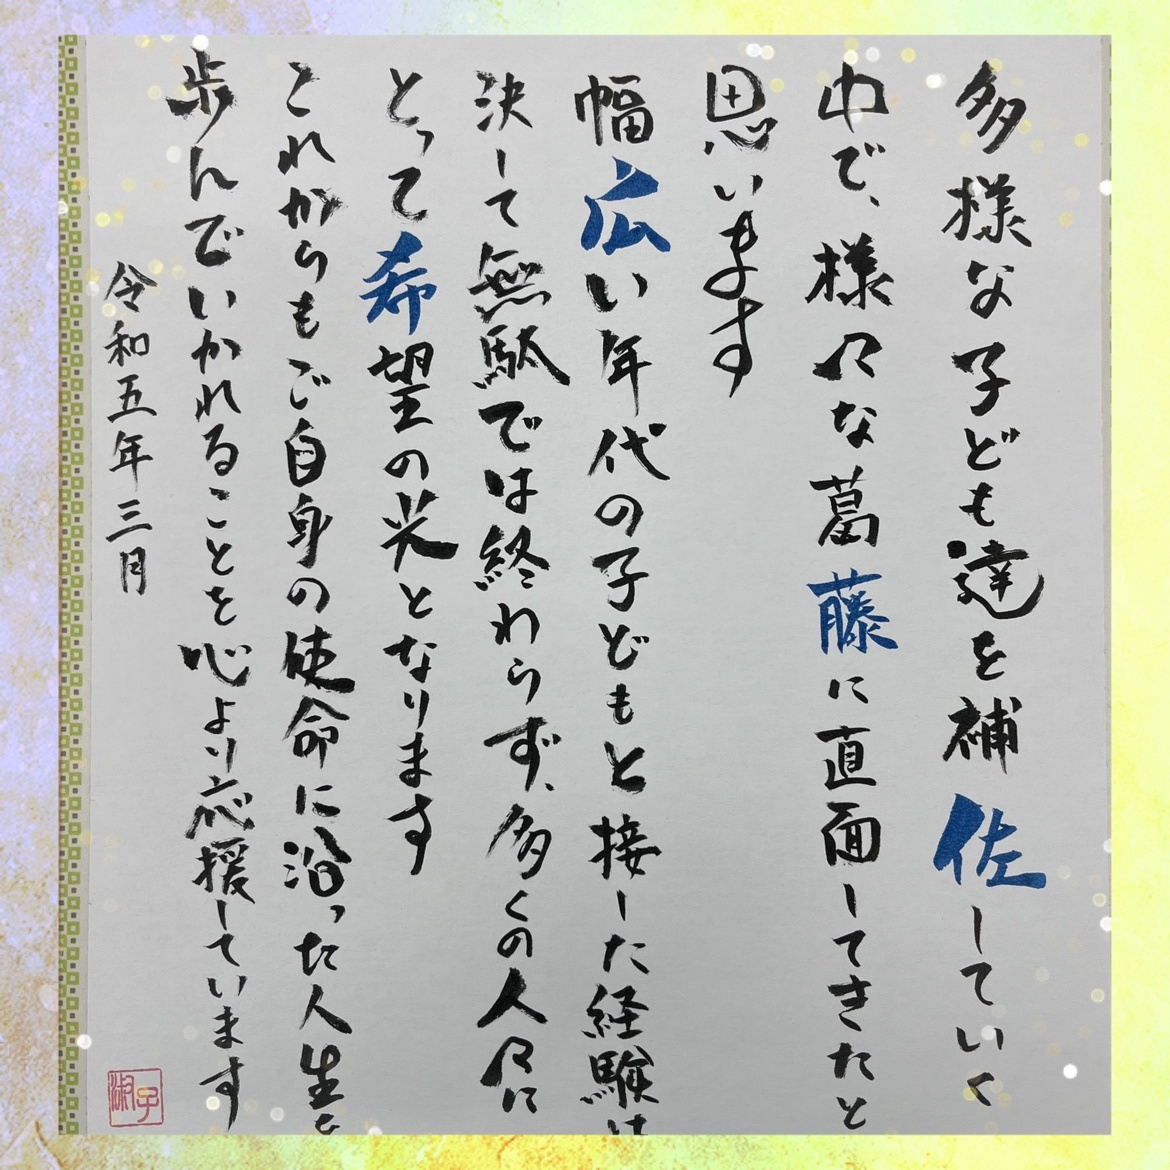 多様な子ども達を補佐していく
中で、様々な葛藤に直面してきたと
思います
幅広い年代の子どもと接した経験は
決して無駄では終わらず、多くの人々に
とって希望の光となります
これからもご自身の使命に沿った人生を
歩んでいかれることを心より応援しています
令和五年三月
淑子